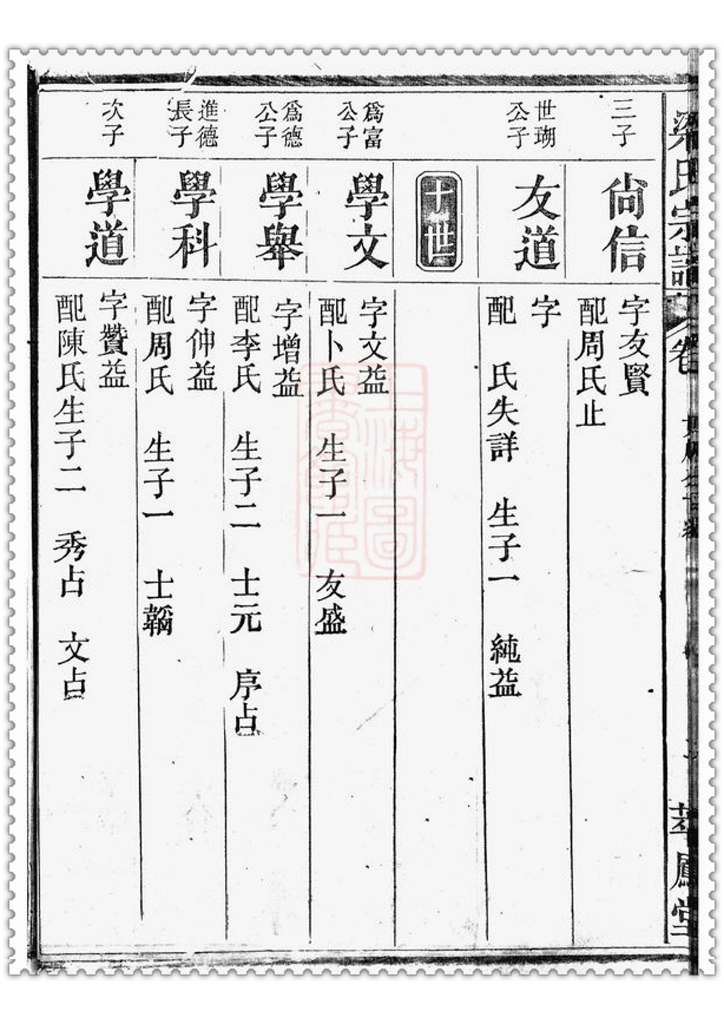 梁氏宗譜
卷
萃鳳堂
三子
尙信
字友賢
配周氏止
世瑚
公子
友道
字
配 氏失詳 生子一 純益
十世
爲富
公子
學文
字文益
配卜氏 生子一 友盛
爲德
公子
學舉
字增益
配李氏 生子二 士元 序占
進德
長子
學科
字仲益
配周氏 生子一 士韜
次子
學道
字贊益
配陳氏生子二 秀占 文占
上海圖